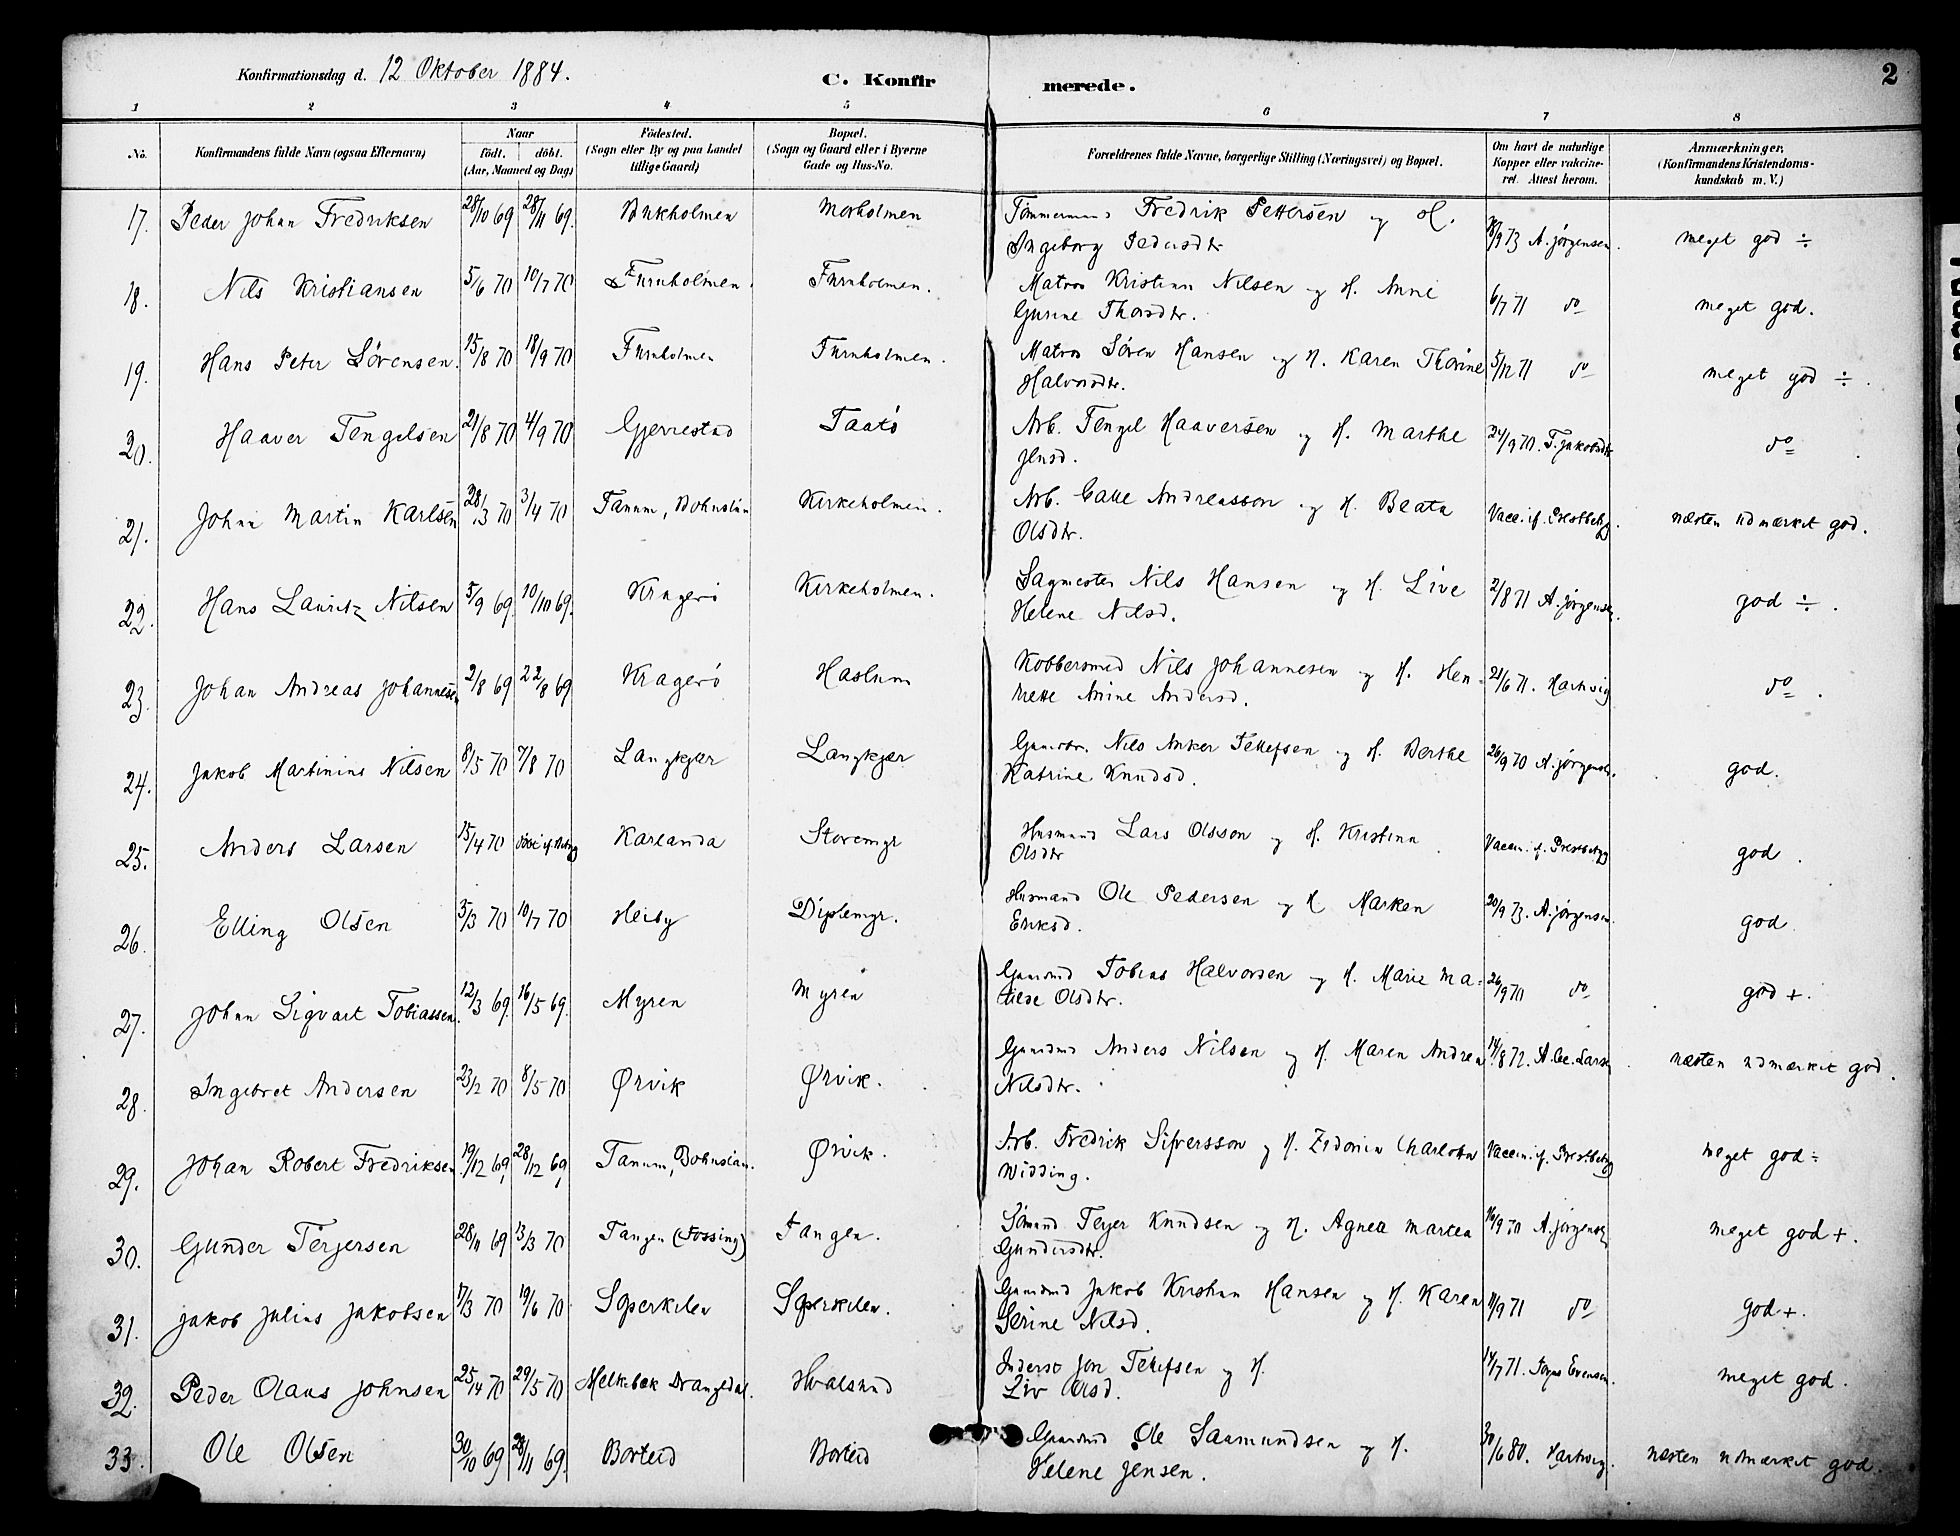 Konfirmationsdag d. 12 Oktober 1884.
C. Konfirmerede.
2
1 2 3 4 5 6 7 8
No.
Konfirmandens fulde Navn (ogsaa Efternavn)
Naar
födt. döbt.
(Aar, Maaned og Dag)
Födested.
(Sogn eller By og paa Landet
tillige Gaard)
Bopæl.
(Sogn og Gaard eller i Byerne
Gade og Hus-No.
Forældrenes fulde Navne, borgerlige Stilling (Næringsvei) og Bopæl.
Om havt de naturlige
Kopper eller vakcine-
ret. Attest herom.
Anmærkninger,
(Konfirmandens Kristendoms-
kundskab m. V.)
17. Peder Johan Fredriksen 28/10 69 28/11 69. Morholmen Fredrik Pettersen og H. 9 73 A. Jörgensen. meget god ÷
Ingeborg Pedersdtr
18. Nils Kristiansen 5/6 70 10/7 70 Furuholmen. Furuholmen. Matros Kristian Nilsen og H. Anne 6/7 71 do meget god.
Gurine Thorsdtr.
19. Hans Peter Sörensen. 15/8 70 18/9 70 Furuholmen Furuholmen. Matros Sören Hansen og H. Karen Thorine 5/12 71 do meget god ÷.
Halvorsdtr.
20. Haaver Tengelsen 21/8 70 4/9 70 Gjerrestad Taatö Arb. Tengel Haaversen og H. Marthe 24/9 70. T. Jakobsdtr do
Jensd.
21. Johan Martin Karlsen 28/3 70 3/4 70 Tanum, Bohuslän Kirkeholmen. Arb. Calle Andreasson og H. Beata Vacc. if. Prestbetyg. næsten udmærket god.
Olsdtr.
22. Hans Lauritz Nilsen 5/9 69. 10/10 69. Kragerö Kirkeholmen. Sagmester Nils Hansen og H. Live 2/8 71 A. Jörgensen. god ÷.
Helene Nilsd.
23. Johan Andreas Johannesen 2/8 69 22/8 69 Kragerö Haslum Kobbersmed Nils Johannesen og H. Hen- 21/6 71. Hartvig do.
riette Anine Andersd.
24. Jakob Martinius Nilsen 8/5 70 7/8 70 Langkjær Langkjær Gaardbr. Nils Anker Tellefsen og H. Berthe 26/9 70 A. Jörgensen. god.
Katrine Knudsd.
25. Anders Larsen 15/4 70 Döbt if. Betyg Karlanda Storemyr Husmand Lars Olsson og H. Kristina Vaccin. if. Prestbetyg god.
Olsdtr
26. Elling Olsen 5/3 70 10/7 70 Heiby Diplemyr. Husmand Ole Pedersen og H. Marken 20/9 73. A. Jörgensen. god
Eriksd.
27. Johan Sigvart Tobiassen. 12/3 69. 16/5 69. Myren Myren Gaardmd Tobias Halvorsen og H. Marie Ma- 26/9 70 do god +.
tilde Olsdtr.
28. Ingebret Andersen 23/2 70 8/5 70 Ørvik Ørvik. Gaardmd Anders Nilsen og H. Maren Andrea 14/8 72. Larsen næsten udmærket god.
Nilsdtr.
29. Johan Robert Fredriksen 19/12 69, 28/12 69, Tanum, Bohuslän. Ørvik. Arb. Fredrik Sifversson og H. Zedonia Charlotta Vaccin. if. Prestbetyg meget god ÷
Widding.
30. Gunder Terjersen 28/11 69 13/3 70 Tangen (Fossing) Tangen. Sömand Terjer Knudsen og H. Agnea Martea 16/9 70 A. Jörgensen meget god +.
Gundersdtr.
31. Jakob Julius Jakobsen 17/3 70 19/6 70 Soperkilen Soperkilen. Gaardmd Jakob Kristian Hansen og H. Karen 11/9 71 do god +.
Serine Nilsd.
32. Peder Olaus Johnsen 25/4 70 29/5 70 Melkebæk Drangedal. Hvalsund Inderst Jon Tellefsen og H. 14/7 71. Evensen. meget god.
Liv Olsd.
33. Ole Olsen 30/10 69 28/11 69. Borteid Borteid Gaardmd Ole Saamundsen og H. 30/6 80. Hartvig. næsten udmærket god.
Helene Jensen.